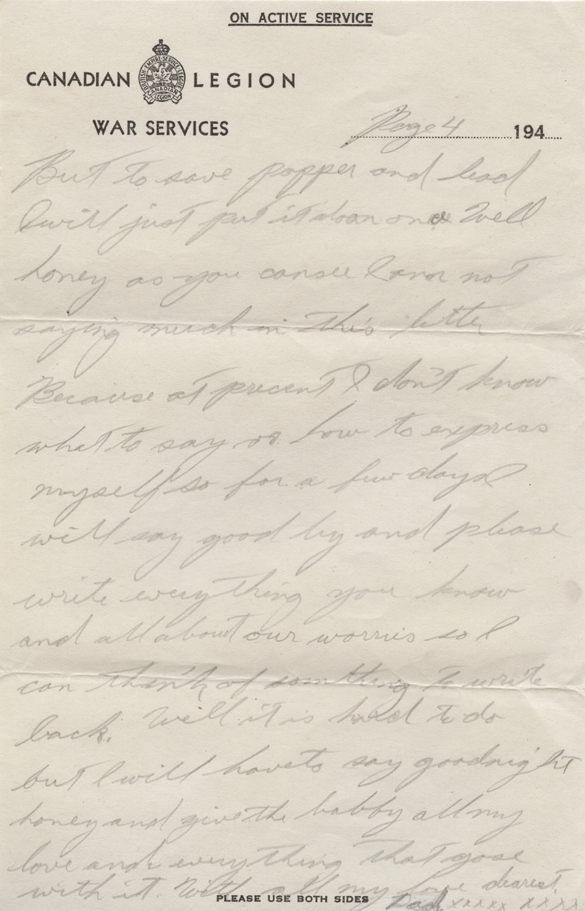 ON ACTIVE SERVICE
CANADIAN LEGION
WAR SERVICES
Page 4 194
But to save papper and lead
I will just put it down once Well
honey as you cansee I am not
saying much in this letter
Because at precent I don't know
what to say or how to express
myself so for a few days I
will say good by and please
write everything you know
and all about our worris so I
can think of something to write
back. Well it is hard to do
but I will haveto say goodnight
honey and give the babby all my
love and everything that gose
with it. With all my love dearest.
PLEASE USE BOTH SIDES Dad xxxx xxxx